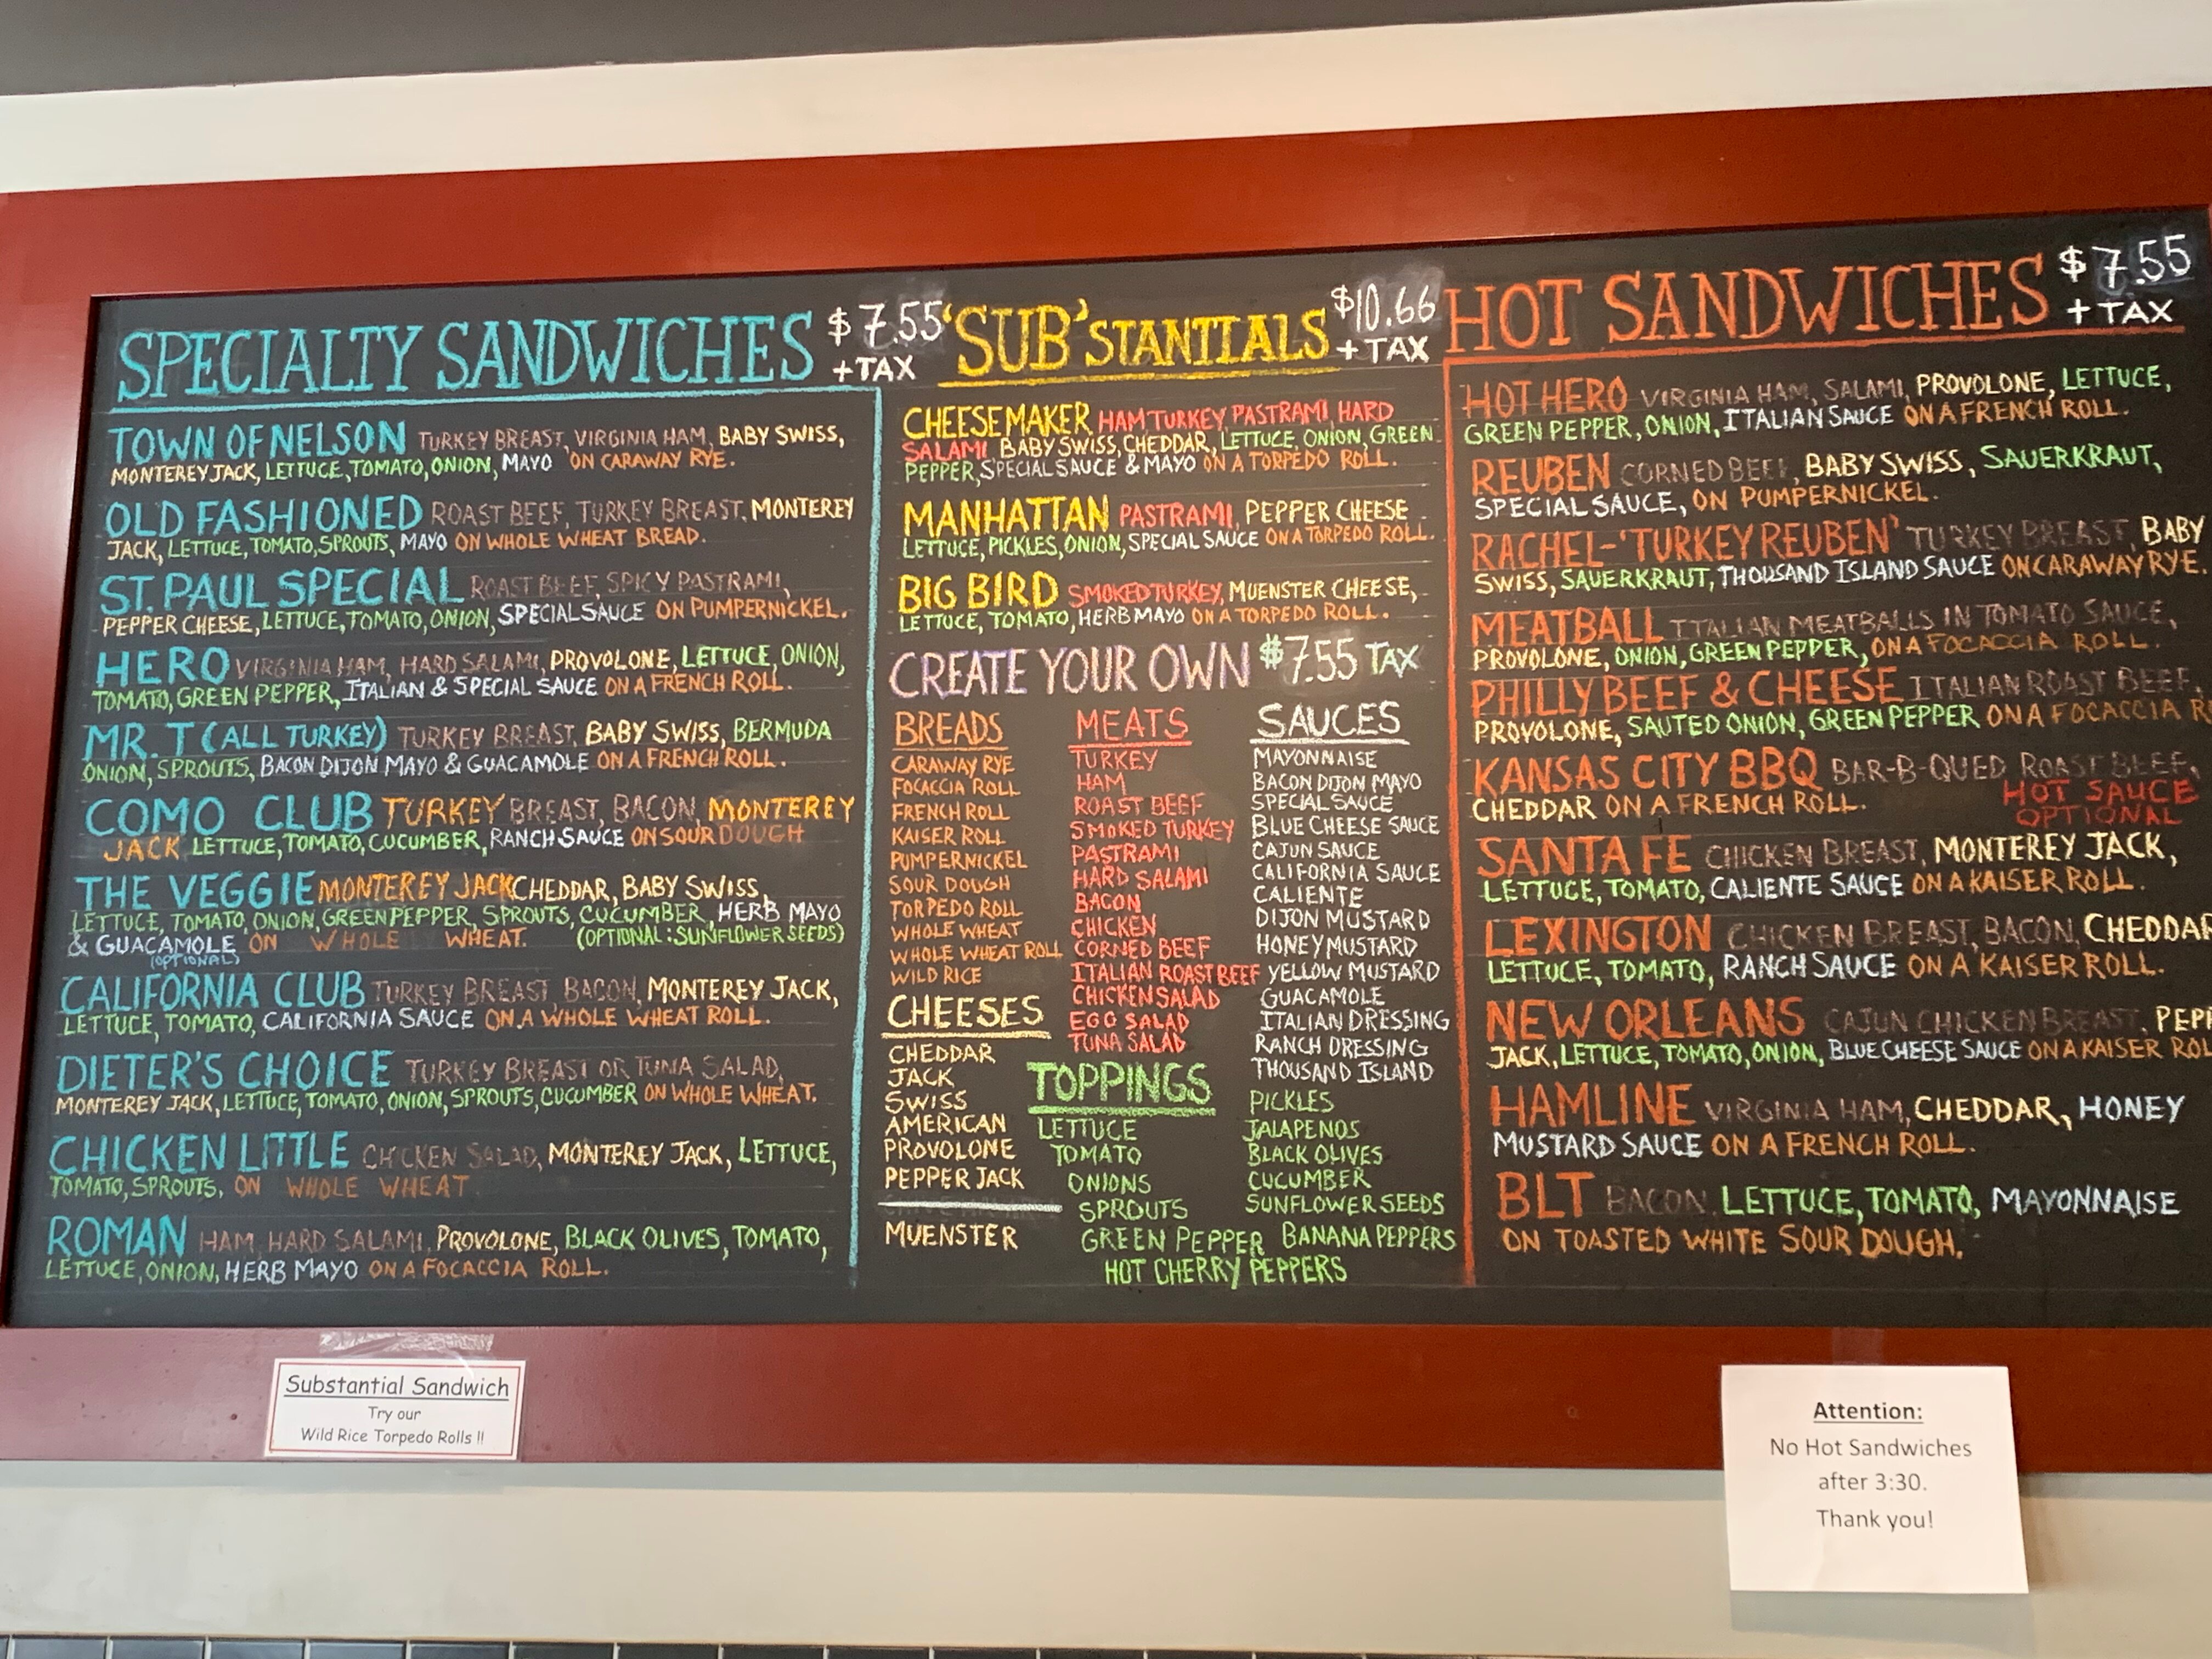 SPECIALTY SANDWICHES $7.55
+TAX
TOWN OF NELSON TURKEY BREAST, VIRGINIA HAM, BABY SWISS,
MONTEREY JACK, LETTUCE, TOMATO, ONION, MAYO ON CARAWAY RYE.
OLD FASHIONED ROAST BEEF, TURKEY BREAST, MONTEREY
JACK, LETTUCE, TOMATO, SPROUTS, MAYO ON WHOLE WHEAT BREAD.
ST. PAUL SPECIAL ROAST BEEF, SPICY PASTRAMI,
PEPPER CHEESE, LETTUCE, TOMATO, ONION, SPECIAL SAUCE ON PUMPERNICKEL.
HERO VIRGINIA HAM, HARD SALAMI, PROVOLONE, LETTUCE, ONION,
TOMATO, GREEN PEPPER, ITALIAN & SPECIAL SAUCE ON A FRENCH ROLL.
MR. T (ALL TURKEY) TURKEY BREAST, BABY SWISS, BERMUDA
ONION, SPROUTS, BACON DIJON MAYO & GUACAMOLE ON A FRENCH ROLL.
COMO CLUB TURKEY BREAST, BACON, MONTEREY
JACK LETTUCE, TOMATO, CUCUMBER, RANCH SAUCE ON SOUR DOUGH
THE VEGGIE MONTEREY JACK CHEDDAR, BABY SWISS,
LETTUCE, TOMATO, ONION, GREEN PEPPER, SPROUTS, CUCUMBER, HERB MAYO
& GUACAMOLE ON WHOLE WHEAT. (OPTIONAL: SUNFLOWER SEEDS)
(OPTIONAL)
CALIFORNIA CLUB TURKEY BREAST, BACON, MONTEREY JACK,
LETTUCE, TOMATO, CALIFORNIA SAUCE ON A WHOLE WHEAT ROLL.
DIETER'S CHOICE TURKEY BREAST OR TUNA SALAD,
MONTEREY JACK, LETTUCE, TOMATO, ONION, SPROUTS, CUCUMBER ON WHOLE WHEAT.
CHICKEN LITTLE CHICKEN SALAD, MONTEREY JACK, LETTUCE,
TOMATO, SPROUTS, ON WHOLE WHEAT
ROMAN HAM, HARD SALAMI, PROVOLONE, BLACK OLIVES, TOMATO,
LETTUCE, ONION, HERB MAYO ON A FOCACCIA ROLL.
'SUB'STANTIALS $10.66
+ TAX
CHEESEMAKER HAM TURKEY, PASTRAMI, HARD
SALAMI BABY SWISS, CHEDDAR, LETTUCE, ONION, GREEN
PEPPER, SPECIAL SAUCE & MAYO ON A TORPEDO ROLL.
MANHATTAN PASTRAMI, PEPPER CHEESE
LETTUCE, PICKLES, ONION, SPECIAL SAUCE ON A TORPEDO ROLL.
BIG BIRD SMOKED TURKEY, MUENSTER CHEESE,
LETTUCE, TOMATO, HERB MAYO ON A TORPEDO ROLL.
CREATE YOUR OWN $7.55 TAX
BREADS
CARAWAY RYE
FOCACCIA ROLL
FRENCH ROLL
KAISER ROLL
PUMPERNICKEL
SOUR DOUGH
TORPEDO ROLL
WHOLE WHEAT
WHOLE WHEAT ROLL
WILD RICE
CHEESES
CHEDDAR
JACK
SWISS
AMERICAN
PROVOLONE
PEPPER JACK
MUENSTER
MEATS
TURKEY
HAM
ROAST BEEF
SMOKED TURKEY
PASTRAMI
HARD SALAMI
BACON
CHICKEN
CORNED BEEF
ITALIAN ROAST BEEF
CHICKEN SALAD
EGG SALAD
TUNA SALAD
SAUCES
MAYONNAISE
BACON DIJON MAYO
SPECIAL SAUCE
BLUE CHEESE SAUCE
CAJUN SAUCE
CALIFORNIA SAUCE
CALIENTE
DIJON MUSTARD
HONEY MUSTARD
YELLOW MUSTARD
GUACAMOLE
ITALIAN DRESSING
RANCH DRESSING
THOUSAND ISLAND
TOPPINGS
LETTUCE
TOMATO
ONIONS
SPROUTS
GREEN PEPPER
PICKLES
JALAPENOS
BLACK OLIVES
CUCUMBER
SUNFLOWER SEEDS
BANANA PEPPERS
HOT CHERRY PEPPERS
HOT SANDWICHES $7.55
+ TAX
HOT HERO VIRGINIA HAM, SALAMI, PROVOLONE, LETTUCE,
GREEN PEPPER, ONION, ITALIAN SAUCE ON A FRENCH ROLL.
REUBEN CORNED BEEF, BABY SWISS, SAUERKRAUT,
SPECIAL SAUCE, ON PUMPERNICKEL.
RACHEL-'TURKEY REUBEN' TURKEY BREAST, BABY
SWISS, SAUERKRAUT, THOUSAND ISLAND SAUCE ON CARAWAY RYE.
MEATBALL ITALIAN MEATBALLS IN TOMATO SAUCE,
PROVOLONE, ONION, GREEN PEPPER, ON A FOCACCIA ROLL.
PHILLY BEEF & CHEESE ITALIAN ROAST BEEF,
PROVOLONE, SAUTED ONION, GREEN PEPPER ON A FOCACCIA R
KANSAS CITY BBQ BAR-B-QUED ROAST BEEF,
CHEDDAR ON A FRENCH ROLL. HOT SAUCE
OPTIONAL
SANTA FE CHICKEN BREAST, MONTEREY JACK,
LETTUCE, TOMATO, CALIENTE SAUCE ON A KAISER ROLL.
LEXINGTON CHICKEN BREAST, BACON, CHEDDAR
LETTUCE, TOMATO, RANCH SAUCE ON A KAISER ROLL.
NEW ORLEANS CAJUN CHICKEN BREAST, PEPP
JACK, LETTUCE, TOMATO, ONION, BLUE CHEESE SAUCE ON A KAISER ROL
HAMLINE VIRGINIA HAM, CHEDDAR, HONEY
MUSTARD SAUCE ON A FRENCH ROLL.
BLT BACON, LETTUCE, TOMATO, MAYONNAISE
ON TOASTED WHITE SOUR DOUGH.
Substantial Sandwich
Try our
Wild Rice Torpedo Rolls !!
Attention:
No Hot Sandwiches
after 3:30.
Thank you!